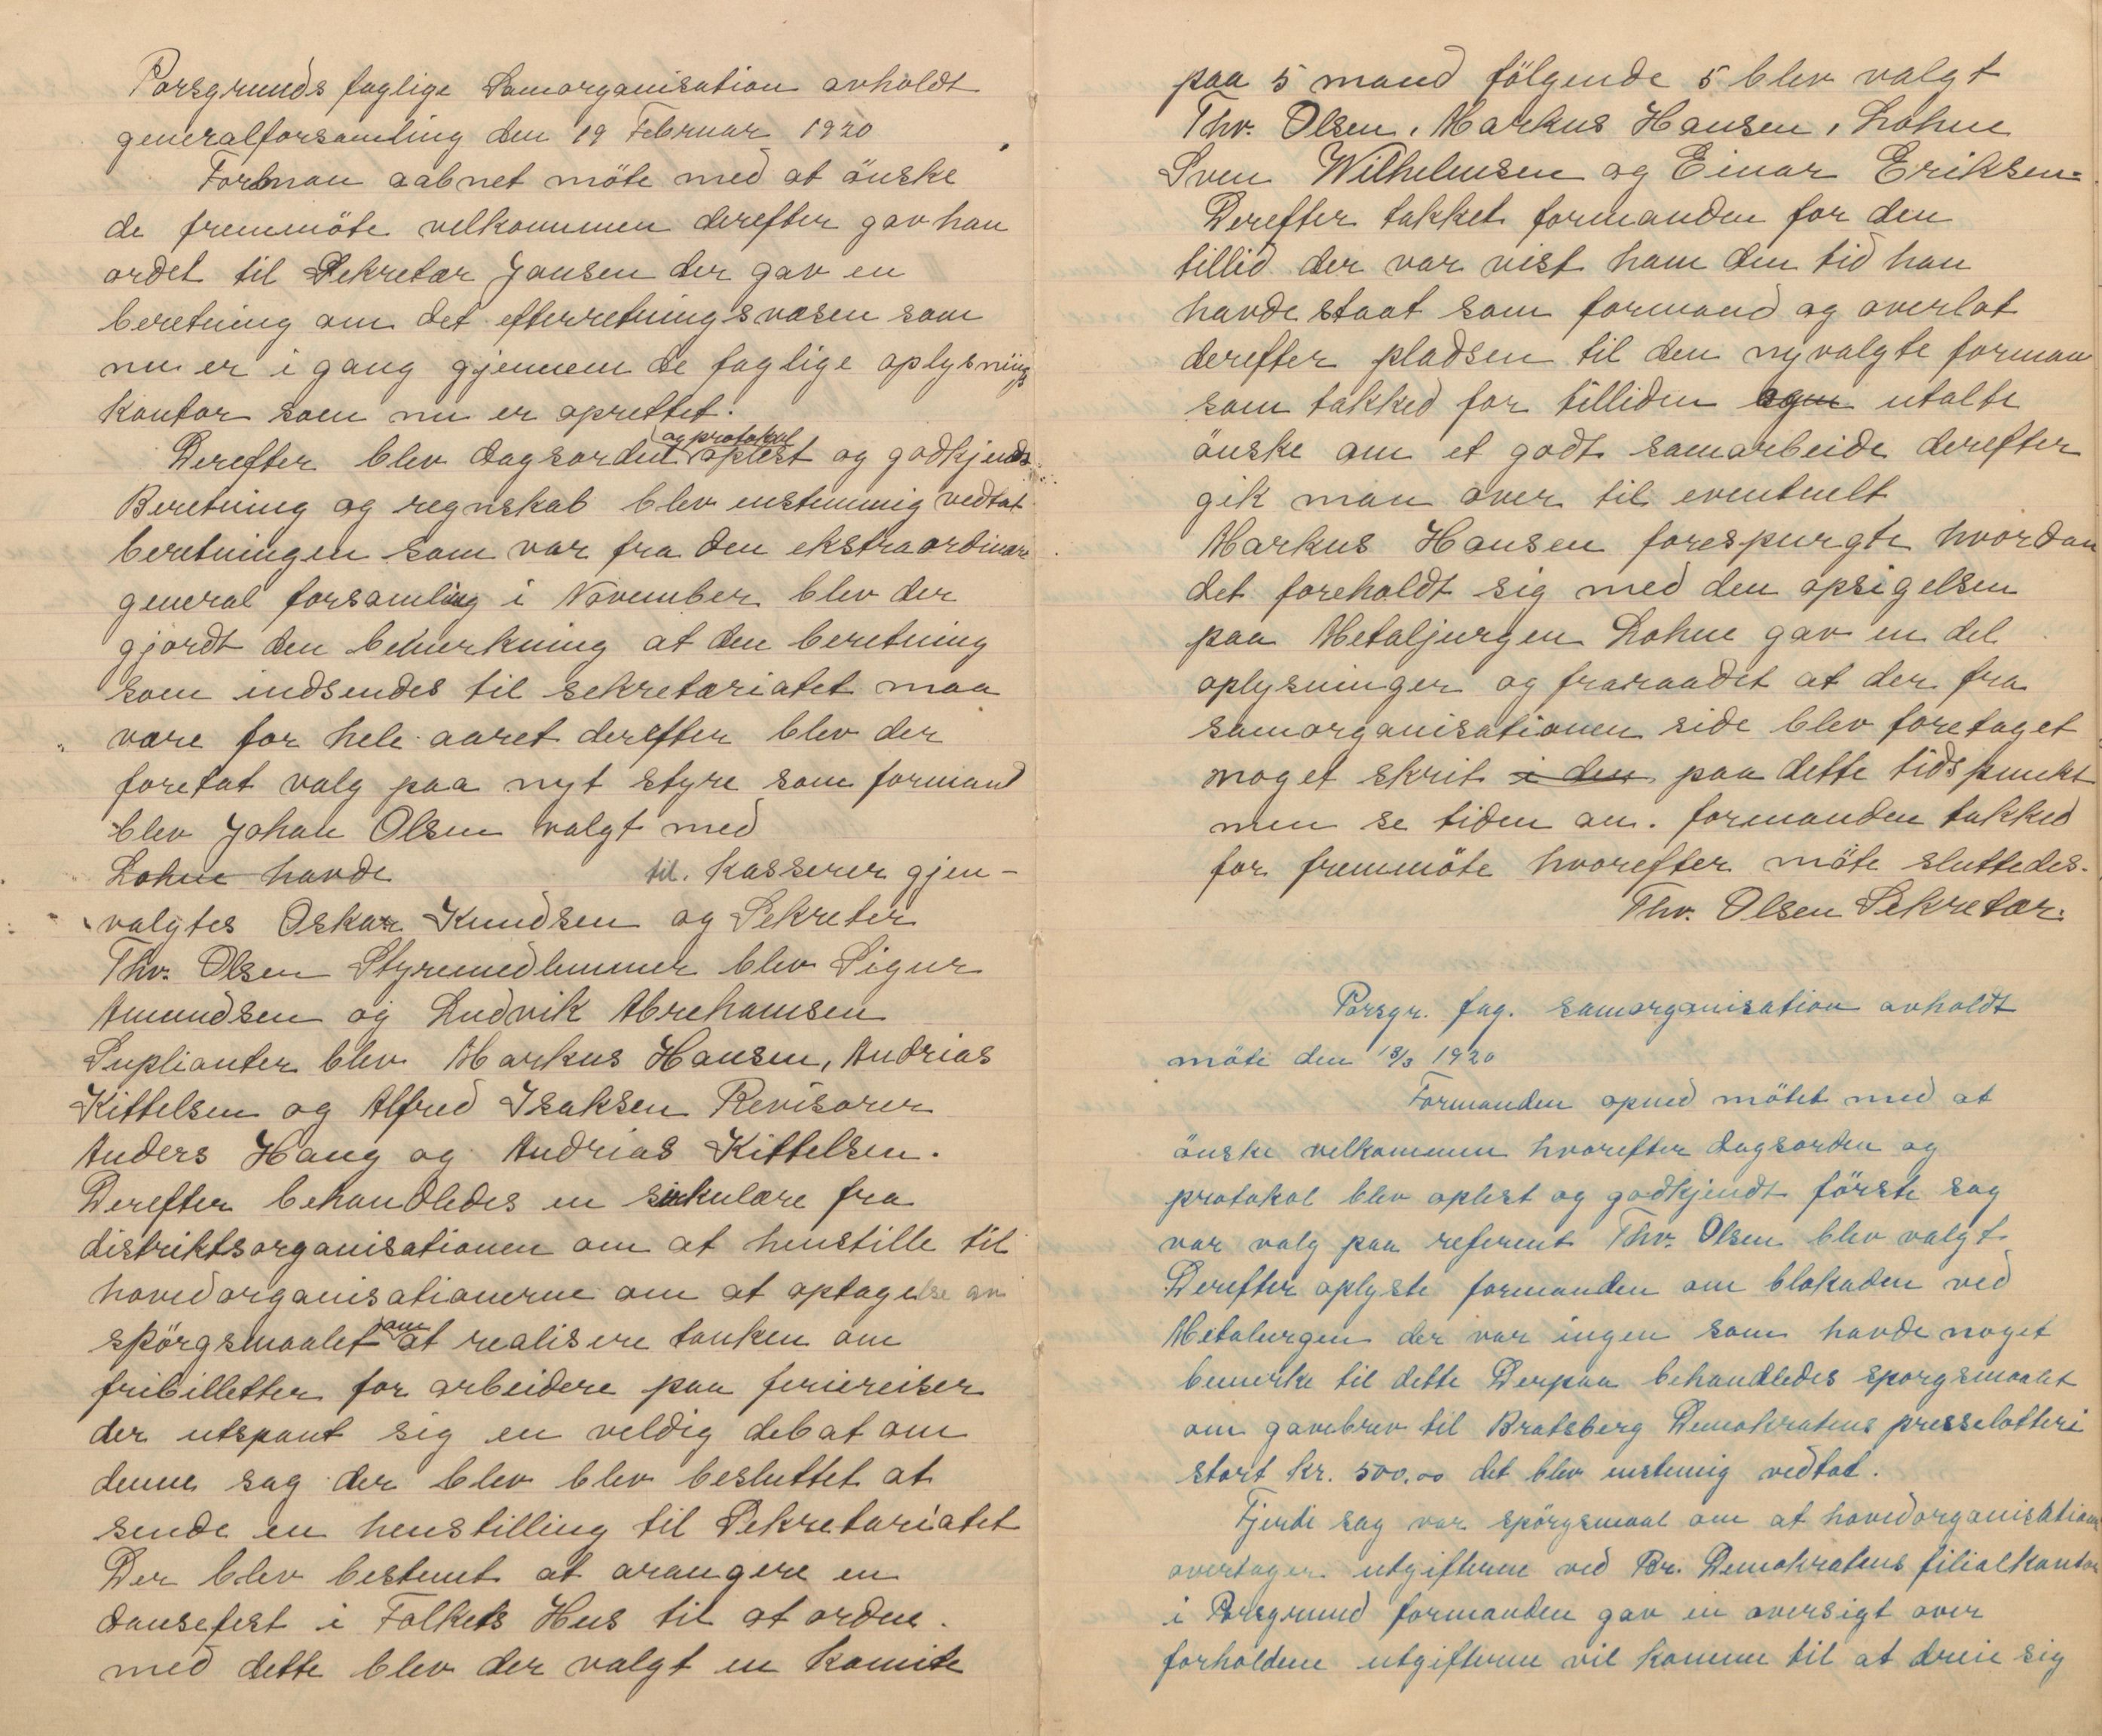 Porsgrunds faglige Samorganisation avholdt
generalforsamling den 19 Februar 1920
Forman aabnet möte med at önske
de fremmöte velkommen derefter gav han
ordet til Sekretær Jansen der gav en
beretning om det efterretningsvæsen som
nu er i gang gjennem de faglige oplysnings
kontor som nu er oprettet.
Derefter blev dagsorden og protokol oplest og godkjendt
Beretning og regnskab blev enstemmig vedtat
beretningen som var fra den ekstraordinære
general forsamling i November blev der
gjordt den bemerkning at den beretning
som indsendes til sekretæriatet maa
være for hele aaret derefter blev der
foretat valg paa nyt styre som formand
blev Johan Olsen valgt med
Lohne havde til. Kasserer gjen-
valgtes Oskar Knudsen og Sekretær
Thv. Olsen Styremedlemmer blev Sigur
Amundsen og Ludvik Abrehamsen
Suplianter blev Markus Hansen, Andrias
Kittelsen og Alfred Isaksen Revisorer
Anders Haug og Andrias Kittelsen.
Derefter behandledes en sirkulære fra
distriktsorganisationen om at henstille til
hovedorganisationerne om at optagelse av
spörgsmaalet om at realisere tanken om
fribilletter for arbeidere paa feriereiser
der utspant sig en veldig debat om
denne sag der blev blev besluttet at
sende en henstilling til Sekretariatet
Der blev bestemt at arangere en
dansefest i Folkets Hus til at ordne
med dette blev der valgt en komite
paa 5 mand fölgende 5 blev valgt
Thv. Olsen, Markus Hansen, Lohne
Sven Wilhelmsen og Einar Eriksen.
Derefter takket formanden for den
tillid der var vist ham den tid han
havde staat som formand og overlot
derefter pladsen til den nyvalgte forman
som takked for tilliden utalte
önske om et godt samarbeide derefter
gik man over til eventuelt
Markus Hansen forespurgte hvordan
det foreholdt sig med den opsigelsen
paa Metaljurgen Lohne gav en del
oplysninger og fraraadet at der fra
samorganisationen side blev foretaget
noget skrit i den paa dette tidspunkt
men se tiden an. formanden takked
for fremmöte hvorefter möte sluttedes.
Thv. Olsen Sekretær.
Porsgr. fag. samorganisation avholdt
möte den 18/3 1920
Formanden apned mötet med at
önske velkommen hvorefter dagsorden og
protokol blev oplest og godkjendt förste sag
var valg paa referent Thv. Olsen blev valgt
Derefter oplyste formanden om blokaden ved
Metalurgen der var ingen som havde noget
bemerke til dette Derpaa behandledes sporgsmaalet
om gavebrev til Bratsberg Demokratens presselotteri
stort kr. 500.00 det blev enstemig vedtat.
Fjerde sag var spörgsmaal om at hovedorganisationen
overtager utgifterne ved Br. Demokratens filialkontor
i Porsgrund formanden gav en oversigt over
forholdene utgifterne vil komme til at dreie sig